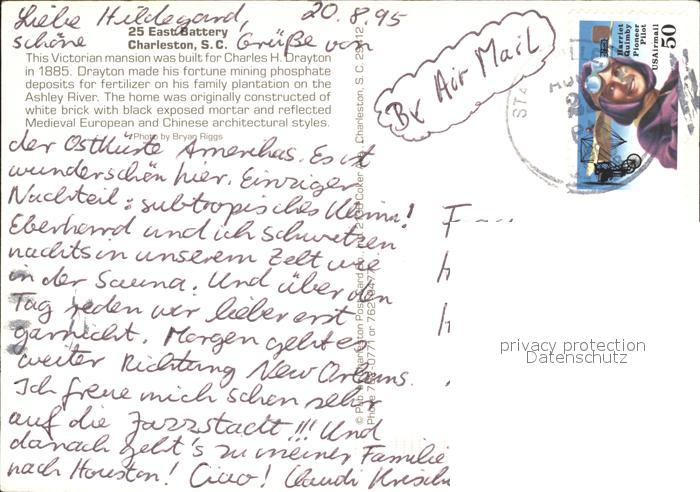 Liebe Hildegard, 20.8.95
schöne Grüße von
25 East Battery
Charleston, S. C.
This Victorian mansion was built for Charles H. Drayton
in 1885. Drayton made his fortune mining phosphate
deposits for fertilizer on his family plantation on the
Ashley River. The home was originally constructed of
white brick with black exposed mortar and reflected
Medieval European and Chinese architectural styles.
Photo by Bryan Riggs
der Ostküste Amerikas. Es ist
wunderschön hier. Einziger
Nachteil: subtropisches Klima!
Eberhard und ich schwitzen
nachts in unserem Zelt wie
in der Sauna. Und über den
Tag reden wir lieber erst
garnicht. Morgen geht es
weiter Richtung New Orleans.
Ich freue mich schon sehr
auf die Jazzstadt!!! Und
danach geht's zu meiner Familie
nach Houston! Ciao! Claudi
By Air Mail
Harriet
Quimby
Pioneer
Pilot
USAirmail
50
privacy protection
Datenschutz